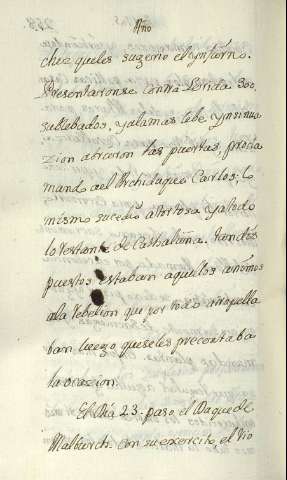 Año
chez queles sugerio el ynfierno.
Presentaronse contra Lerida 300.
sublebados, y alamas lebe ynsinua
zion abrieron las puertas, procla
mando ael Archiduque Carlos; lo
mismo sucedio a Tortosa y atodo
lo restante de Cathaluña. tandis
puestos estaban aquellos animos
ala rebelion que por todo atropella
ban luego queseles presentaba
la ocazion.
El Dia 23. paso el Duque de
Malburch. con su exercito, el Rio